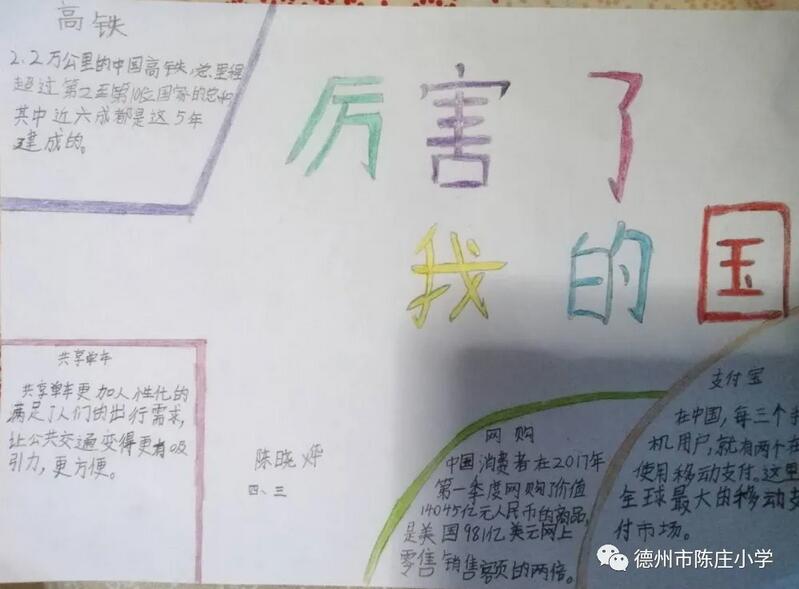 高铁
2.2万公里的中国高铁,总里程
超过第2至第10位国家的总和
其中近六成都是这5年
建成的。
厉害了
我的国
共享单车
共享单车更加人性化的
满足了人们的出行需求,
让公共交通变得更有吸
引力,更方便。
陈晓烨
四、三
网购
中国消费者在2017年
第一季度网购了价值
14045亿元人民币的商品,
是美国981亿美元网上
零售销售额的两倍。
支付宝
在中国,每三个手
机用户,就有两个在
使用移动支付。这里
全球最大的移动支
付市场。
德州市陈庄小学